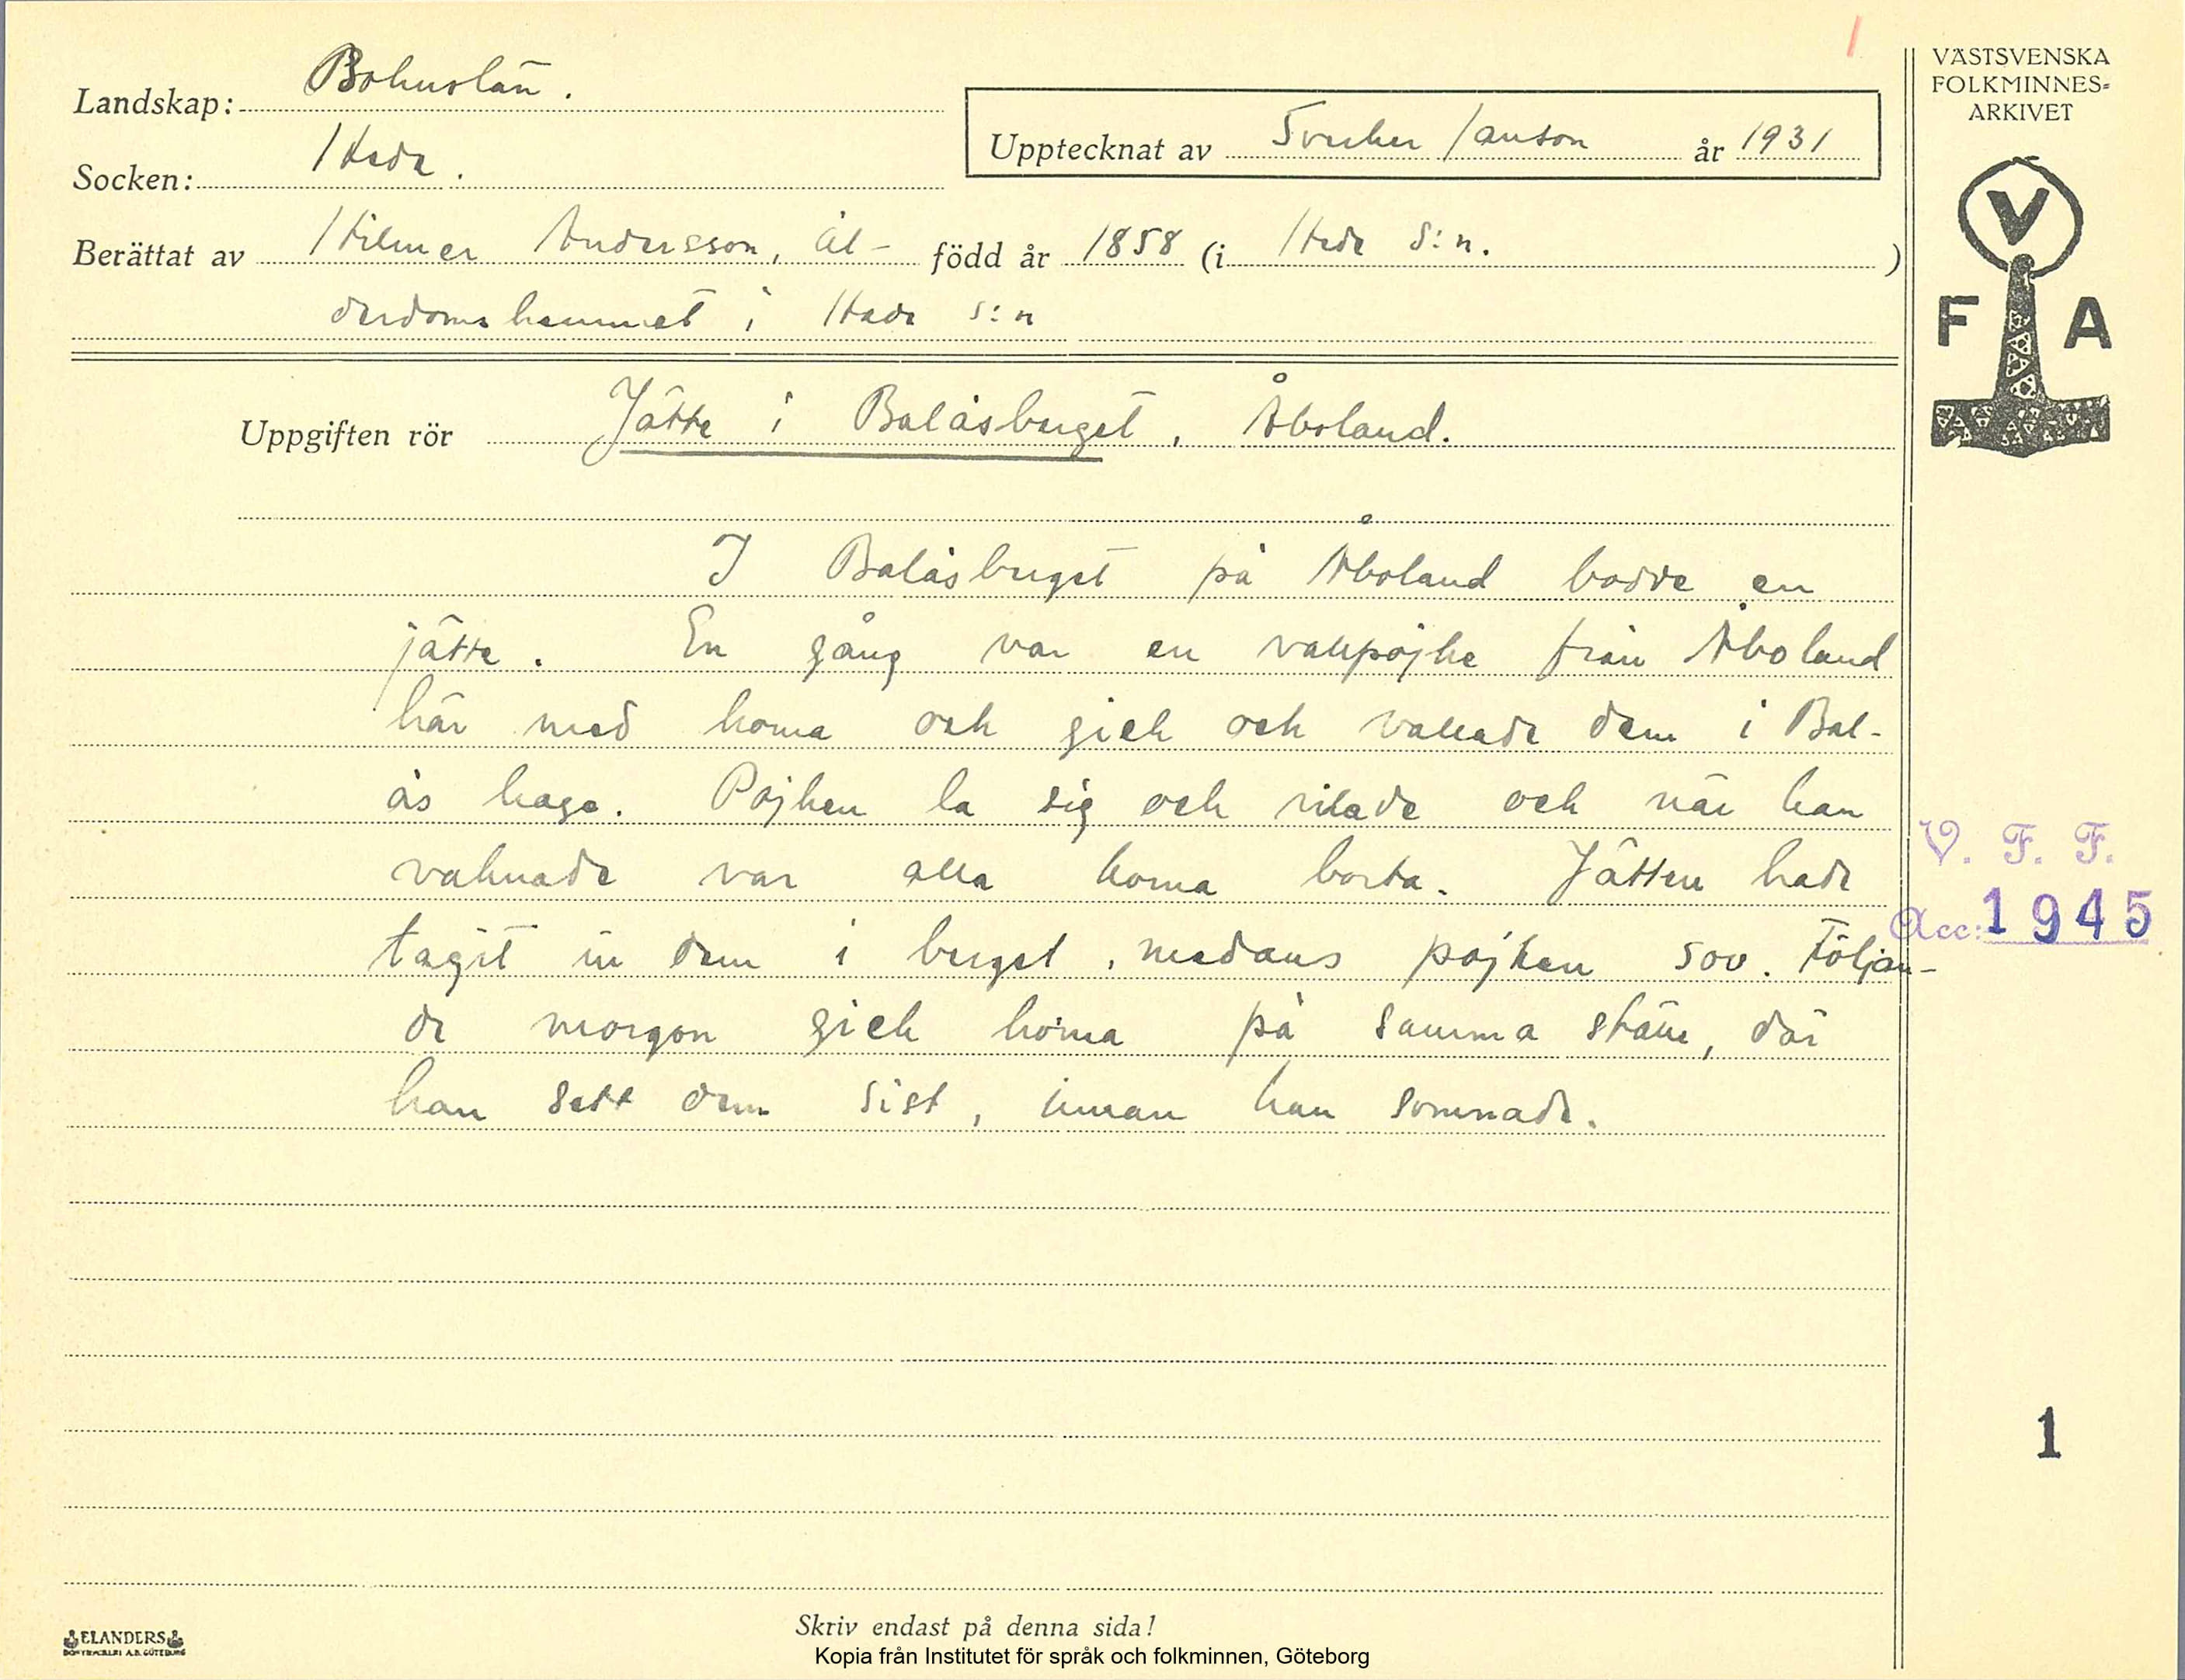 VÄSTSVENSKA
FOLKMINNES-
ARKIVET
Landskap: Bohuslän.
Upptecknat av Sverker Janson år 1931
Socken: Hede.
Berättat av Hilmer Andersson, ål- född år 1858 (i Hede s:n.)
derdomshemmet i Hede s:n
V
F A
Uppgiften rör Jätte i Balåsberget, Åboland.
I Balåsberget på Åboland bodde en
jätte. En gång var en vallpojke från Åboland
här med korna och gick och vallade dem i Bal-
ås hage. Pojken la sig och vilade och när han
vaknade var alla korna borta. Jätten hade
tagit in dem i berget, medans pojken sov. Följan-
de morgon gick korna på samma ställe, där
han sett dem sist, innan han somnade.
V. F. F.
Acc: 1945
1
Skriv endast på denna sida!
ELANDERS
BOKTRYCKERI A.B. GÖTEBORG
Kopia från Institutet för språk och folkminnen, Göteborg